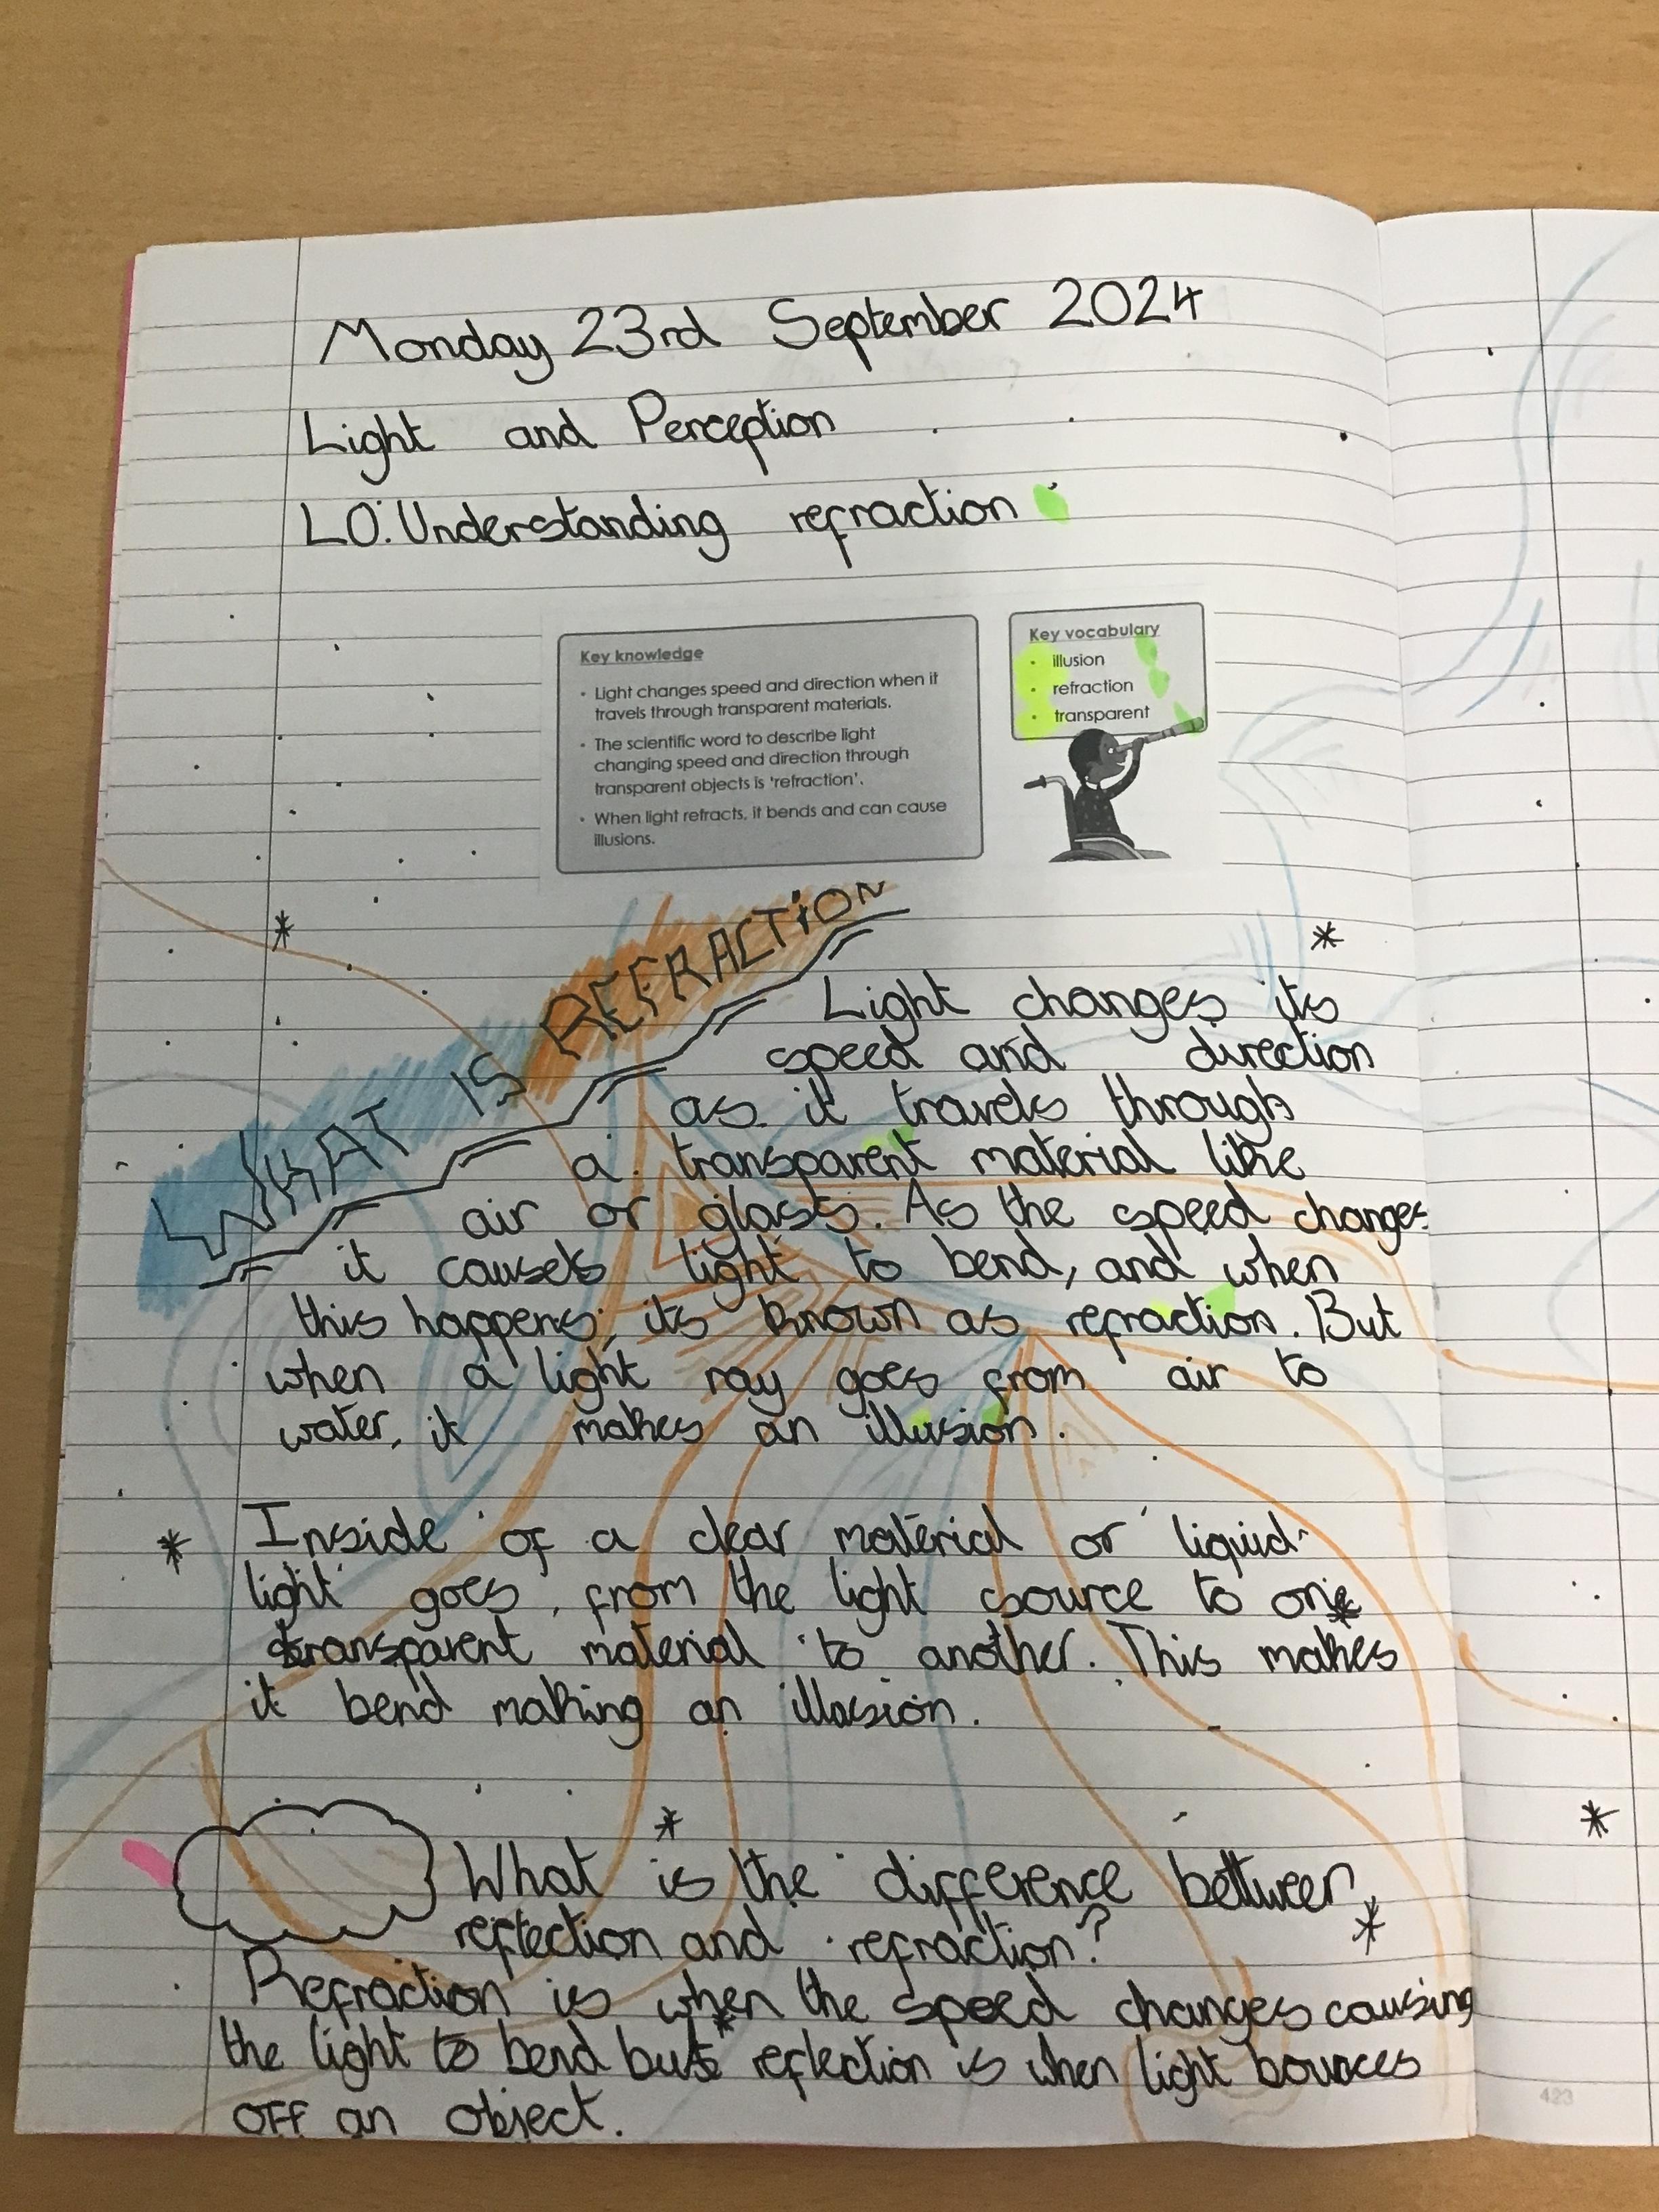 Monday 23rd September 2024
Light and Perception
LO: Understanding refraction
Key knowledge
• Light changes speed and direction when it
travels through transparent materials.
• The scientific word to describe light
changing speed and direction through
transparent objects is 'refraction'.
• When light refracts, it bends and can cause
illusions.
Key vocabulary
• illusion
• refraction
• transparent
WHAT IS REFRACTION
Light changes its
speed and direction
as it travels through
a transparent material like
air or glass. As the speed changes
it causes light to bend, and when
this happens, its known as refraction. But
when a light ray goes from air to
water, it makes an illusion.
* Inside of a clear material or liquid
light goes from the light source to one
transparent material to another. This makes
it bend making an illusion.
What is the difference between
reflection and refraction?
Refraction is when the speed changes causing
the light to bend but reflection is when light bounces
off an object.
423